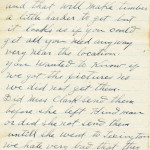 and that will make timber
a little harder to get but
it looks as if you could
get all you need any way
very near the location.
you wanted to know if
we got the pictures no
we did not get them.
Did miss Clark send them
before she left
or did she not send them
untill she went to Lexington
we hate very bad that